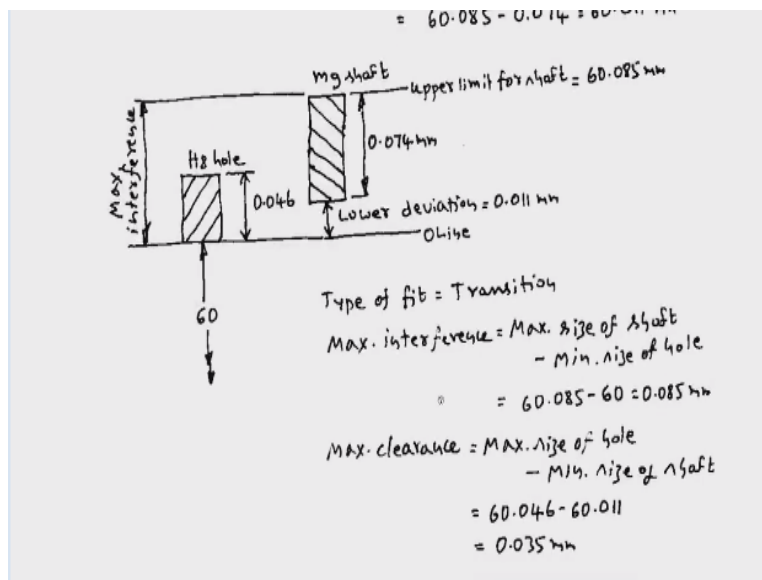 = 60.085 - 0.074 = 60.011 mm
m9 shaft
upper limit for shaft = 60.085 mm
0.074 mm
H8 hole
0.046
Max
interference
Lower deviation = 0.011 mm
0 line
60
Type of fit = Transition
Max. interference = Max. size of shaft
- Min. size of hole
= 60.085 - 60 = 0.085 mm
Max. clearance = Max. size of hole
- Min. size of shaft
= 60.046 - 60.011
= 0.035 mm